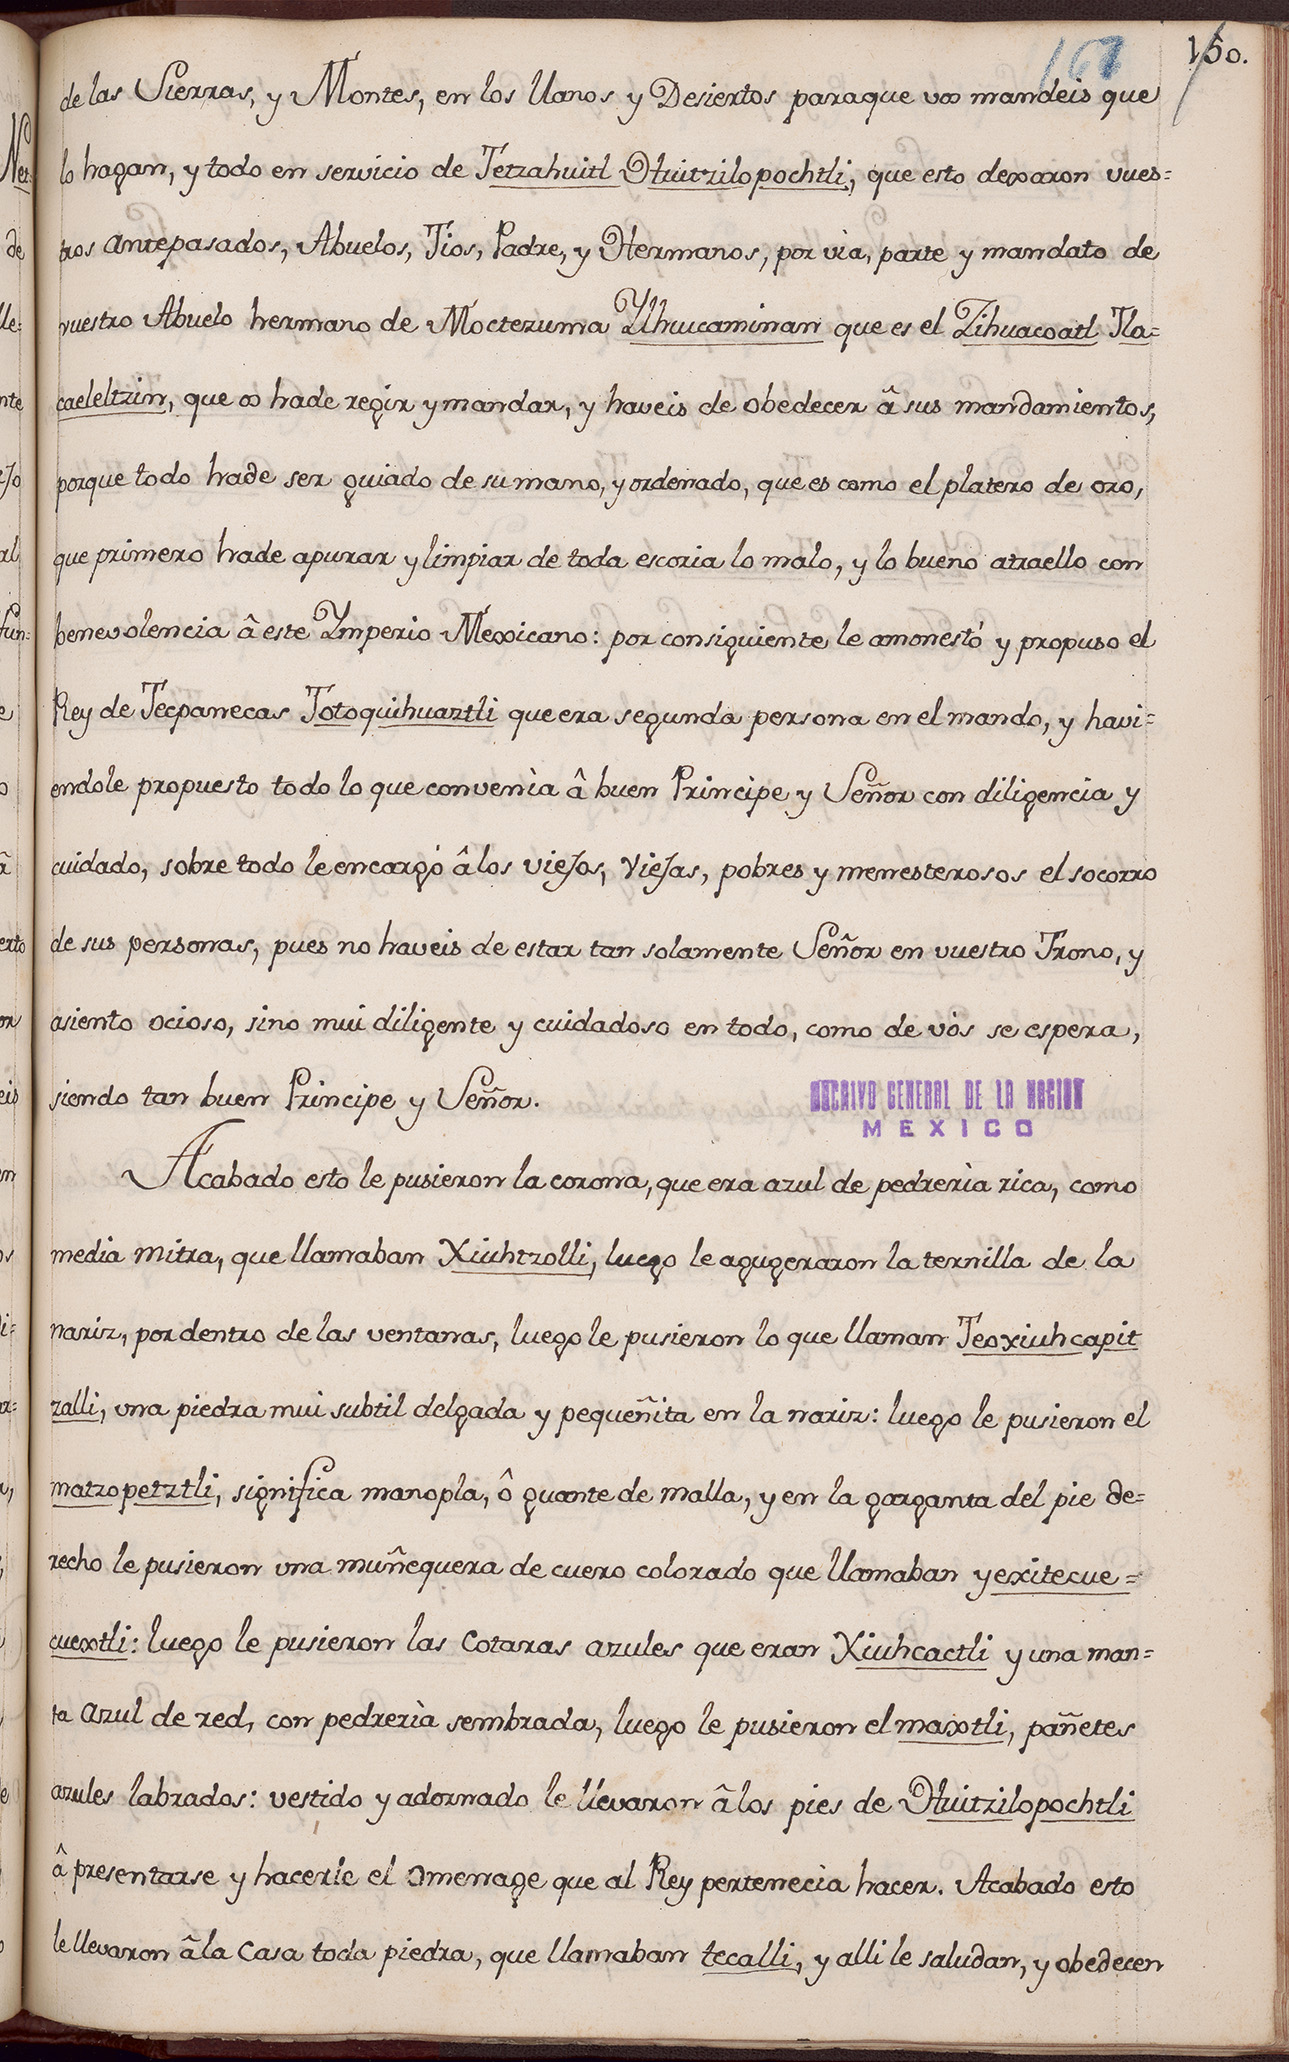 161 150.
de las Sierras, y Montes, en los llanos y Desiertos paraque vos mandeis que
lo hagan, y todo en servicio de Tetzahuitl Huitzilopochtli, que esto dexaron vues=
tros antepasados, Abuelos, Tios, Padre, y Hermanos, por vìa, parte y mandato de
vuestro Abuelo hermano de Moctezuma Ylhuicaminan que es el Zihuacoatl Tla=
caeleltzin, que os hade regir y mandar, y haveis de obedecer â sus mandamientos,
porque todo hade ser guiado de su mano, y ordenado, que es como el platero de oro,
que primero hade apurar y limpiar de toda escoria lo malo, y lo bueno atraello con
benevolencia â este Ymperio Mexicano: por consiguiente le amonestó y propuso el
Rey de Tecpanecas Totoquihuaztli que era segunda persona en el mando, y havi=
endole propuesto todo lo que convenìa â buen Principe y Señor con diligencia y
cuidado, sobre todo le encargó â los viejos, viejas, pobres y menesterosos el socorro
de sus personas, pues no haveis de estar tan solamente Señor en vuestro Trono, y
asiento ocioso, sino mui diligente y cuidadoso en todo, como de vòs se espera,
siendo tan buen Principe y Señor.
ARCHIVO GENERAL DE LA NACION
MEXICO
Acabado esto le pusieron la corona, que era azul de pedrerìa rica, como
media mitra, que llamaban Xiuhtzolli, luego le agugeraron la ternilla de la
nariz, por dentro de las ventanas, luego le pusieron lo que llaman Teoxiuhcapit
zalli, una piedra mui subtil delgada y pequeñita en la nariz: luego le pusieron el
matzopetztli, significa manopla, ô guante de malla, y en la garganta del pie de=
recho le pusieron una muñequera de cuero colorado que llamaban yexitecue=
cuextli: luego le pusieron las cotaras azules que eran Xiuhcactli y una man=
ta azul de red, con pedrerìa sembrada, luego le pusieron el maxtli, pañetes
azules labrados: vestido y adornado le llevaron â los pies de Huitzilopochtli
â presentarse y hacerle el omenage que al Rey pertenecìa hacer. Acabado esto
le llevaron â la Casa toda piedra, que llamaban tecalli, y alli le saludan, y obedecen